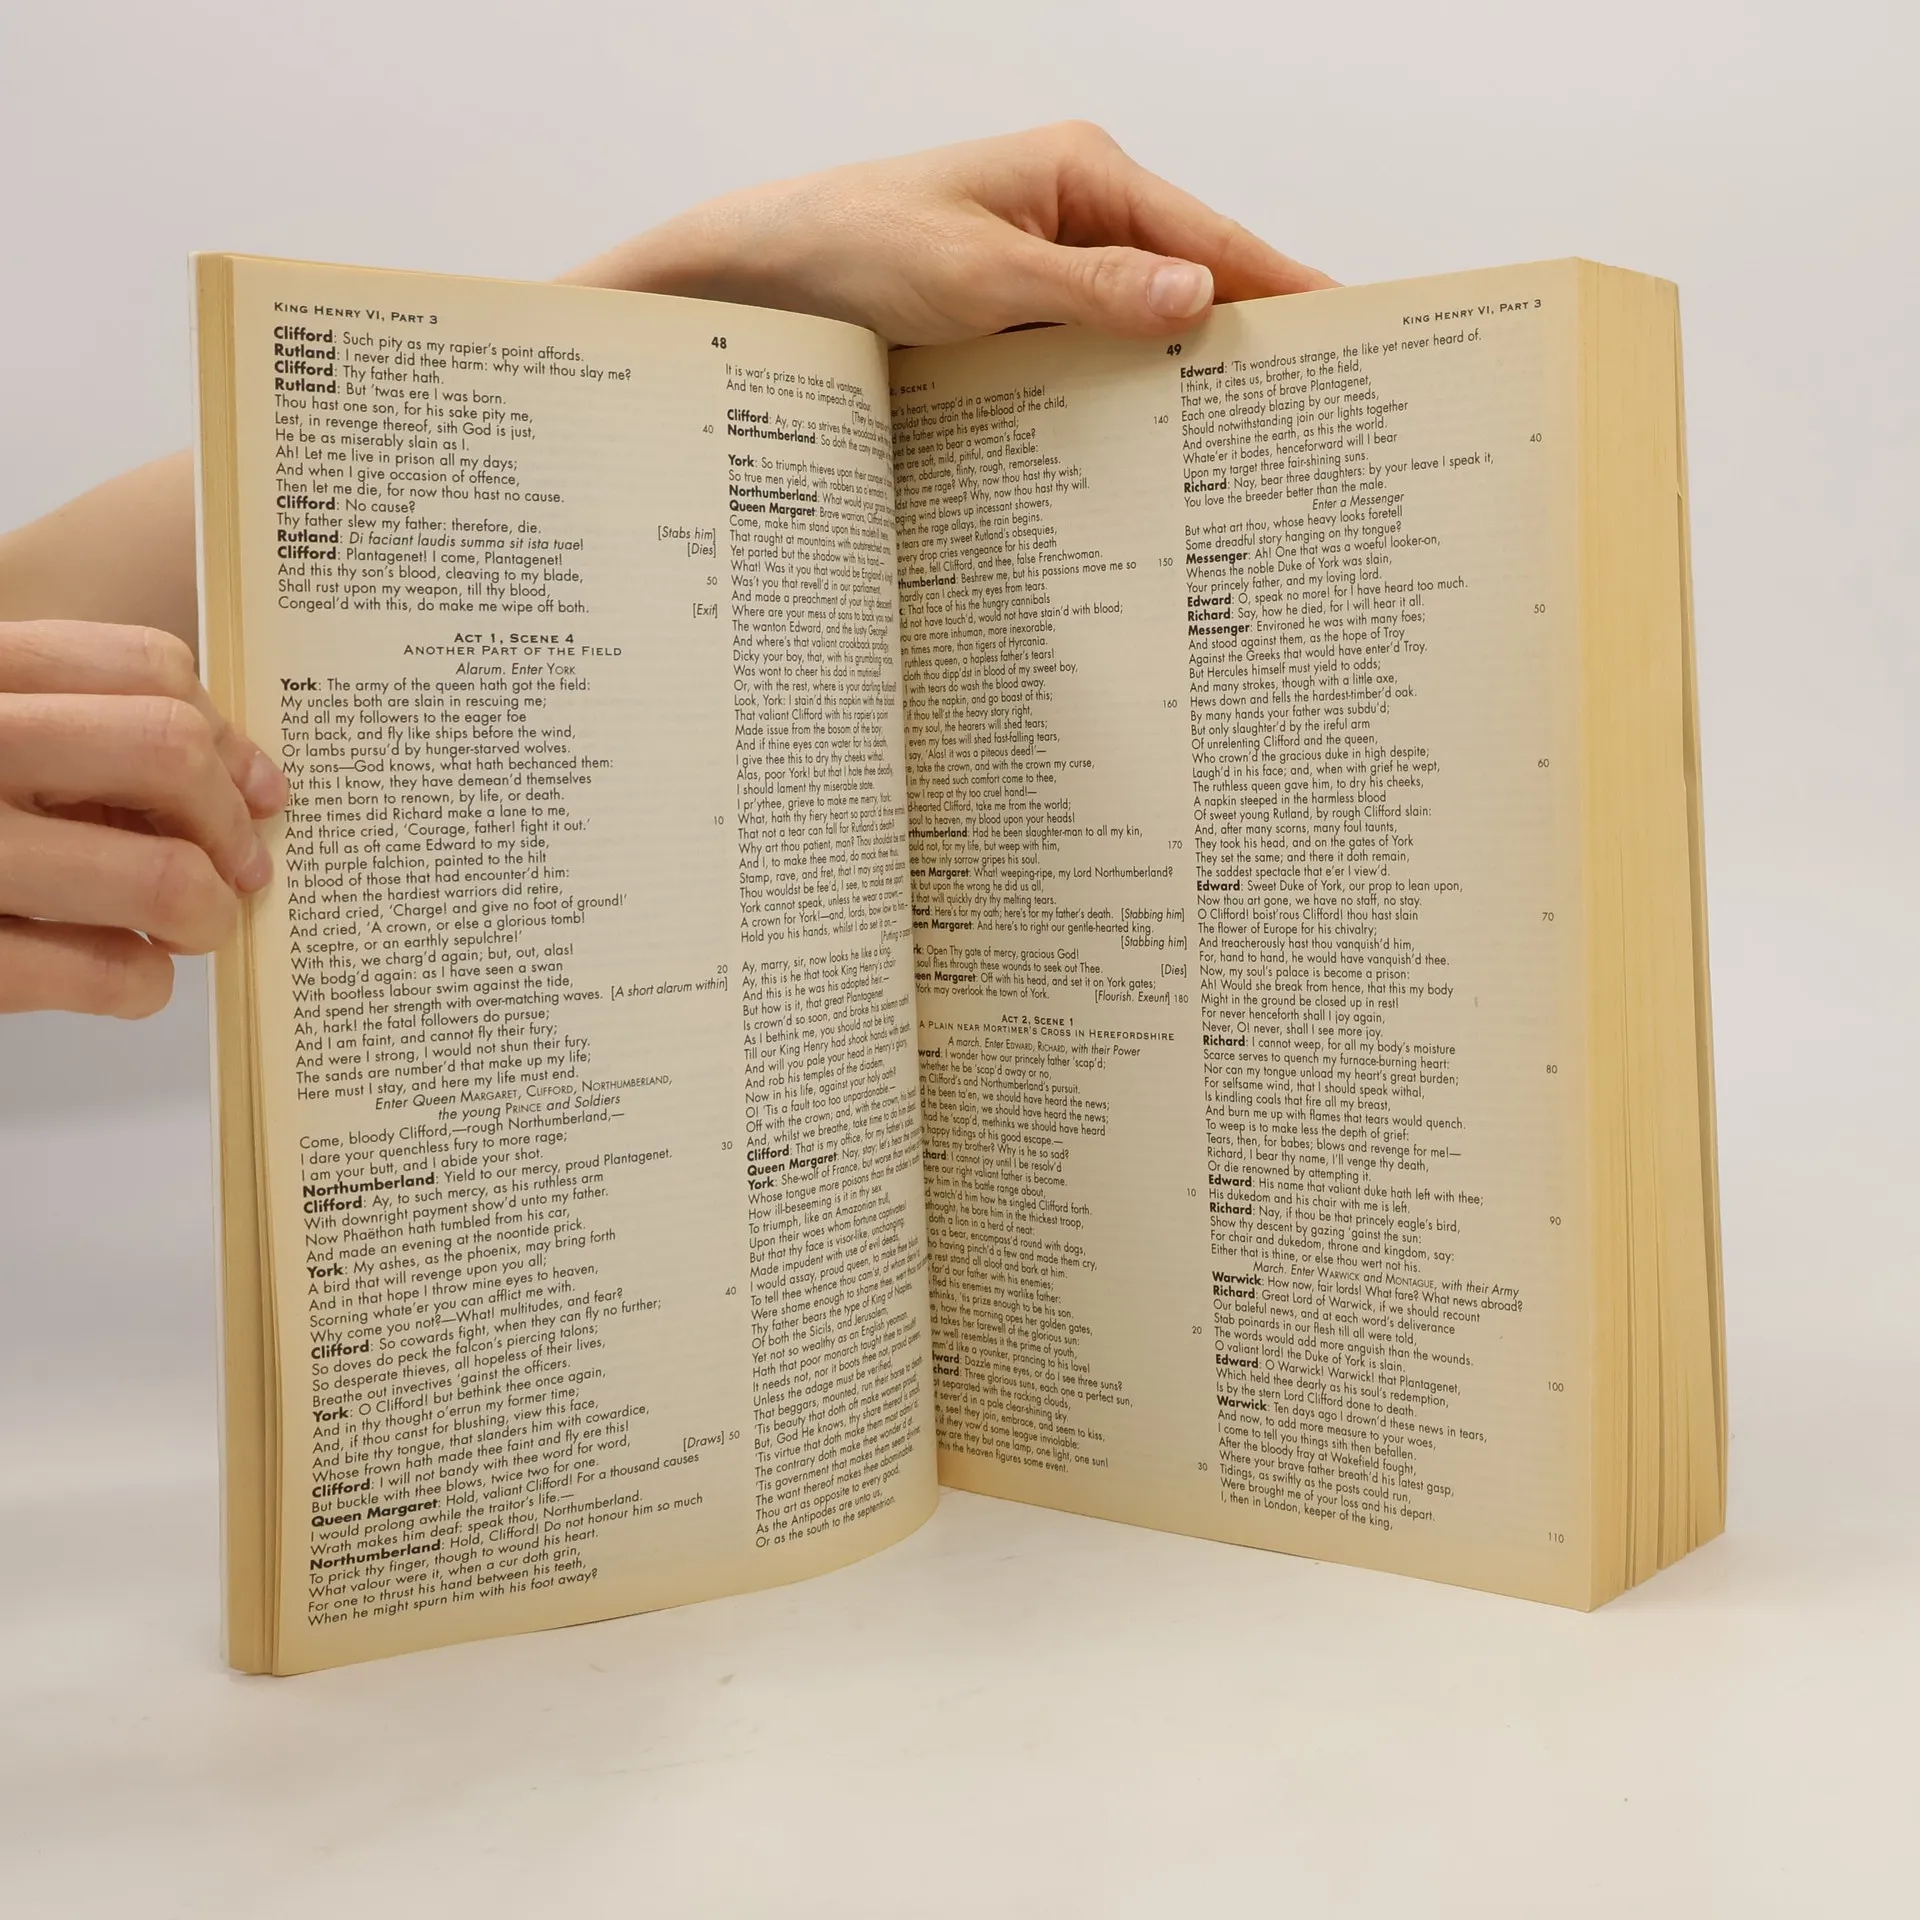 KING HENRY VI, PART 3
48
Clifford: Such pity as my rapier's point affords.
Rutland: I never did thee harm: why wilt thou slay me?
Clifford: Thy father hath.
Rutland: But 'twas ere I was born.
Thou hast one son, for his sake pity me,
Lest, in revenge thereof, sith God is just, 40
He be as miserably slain as I.
Ah! Let me live in prison all my days;
And when I give occasion of offence,
Then let me die, for now thou hast no cause.
Clifford: No cause?
Thy father slew my father: therefore, die. [Stabs him]
Rutland: Di faciant laudis summa sit ista tuae! [Dies]
Clifford: Plantagenet! I come, Plantagenet!
And this thy son's blood, cleaving to my blade, 50
Shall rust upon my weapon, till thy blood,
Congeal'd with this, do make me wipe off both. [Exit]
ACT 1, SCENE 4
ANOTHER PART OF THE FIELD
Alarum. Enter YORK
York: The army of the queen hath got the field:
My uncles both are slain in rescuing me;
And all my followers to the eager foe
Turn back, and fly like ships before the wind,
Or lambs pursu'd by hunger-starved wolves.
My sons—God knows, what hath bechanced them:
But this I know, they have demean'd themselves
Like men born to renown, by life, or death.
Three times did Richard make a lane to me,
And thrice cried, 'Courage, father! fight it out.' 10
And full as oft came Edward to my side,
With purple falchion, painted to the hilt
In blood of those that had encounter'd him:
And when the hardiest warriors did retire,
Richard cried, 'Charge! and give no foot of ground!'
And cried, 'A crown, or else a glorious tomb!
A sceptre, or an earthly sepulchre!'
With this, we charg'd again; but, out, alas!
We bodg'd again: as I have seen a swan
With bootless labour swim against the tide, 20
And spend her strength with over-matching waves. [A short alarum within]
Ah, hark! the fatal followers do pursue;
And I am faint, and cannot fly their fury;
And were I strong, I would not shun their fury.
The sands are number'd that make up my life;
Here must I stay, and here my life must end.
Enter Queen MARGARET, CLIFFORD, NORTHUMBERLAND,
the young PRINCE and Soldiers
Come, bloody Clifford,—rough Northumberland,—
I dare your quenchless fury to more rage;
I am your butt, and I abide your shot.
Northumberland: Yield to our mercy, proud Plantagenet. 30
Clifford: Ay, to such mercy, as his ruthless arm
With downright payment show'd unto my father.
Now Phaëthon hath tumbled from his car,
And made an evening at the noontide prick.
York: My ashes, as the phoenix, may bring forth
A bird that will revenge upon you all;
And in that hope I throw mine eyes to heaven,
Scorning whate'er you can afflict me with.
Why come you not?—What! multitudes, and fear?
Clifford: So cowards fight, when they can fly no further; 40
So doves do peck the falcon's piercing talons;
So desperate thieves, all hopeless of their lives,
Breathe out invectives 'gainst the officers.
York: O Clifford! but bethink thee once again,
And in thy thought o'errun my former time;
And, if thou canst for blushing, view this face,
And bite thy tongue, that slanders him with cowardice,
Whose frown hath made thee faint and fly ere this!
Clifford: I will not bandy with thee word for word,
But buckle with thee blows, twice two for one. [Draws] 50
Queen Margaret: Hold, valiant Clifford! For a thousand causes
I would prolong awhile the traitor's life.—
Wrath makes him deaf: speak thou, Northumberland.
Northumberland: Hold, Clifford! Do not honour him so much
To prick thy finger, though to wound his heart.
What valour were it, when a cur doth grin,
For one to thrust his hand between his teeth,
When he might spurn him with his foot away?
It is war's prize to take all vantages,
And ten to one is no impeach of valour.
[They lay
Clifford: Ay, ay: so strives the woodcock with the
Northumberland: So doth the cony struggle
York: So triumph thieves upon their conquer'd
So true men yield, with robbers so o'ermatch'd.
Northumberland: What would your grace
Queen Margaret: Brave warriors, Clifford and
Come, make him stand upon this molehill here,
That raught at mountains with outstretched arms,
Yet parted but the shadow with his hand—
What! Was it you that would be England's king?
Was't you that revell'd in our parliament,
And made a preachment of your high descent?
Where are your mess of sons to back you now?
The wanton Edward, and the lusty George?
And where's that valiant crookback prodigy,
Dicky your boy, that, with his grumbling voice,
Was wont to cheer his dad in mutinies?
Or, with the rest, where is your darling Rutland?
Look, York: I stain'd this napkin with the blood
That valiant Clifford with his rapier's point
Made issue from the bosom of the boy;
And if thine eyes can water for his death,
I give thee this to dry thy cheeks withal.
Alas, poor York! but that I hate thee deadly,
I should lament thy miserable state.
I pr'ythee, grieve to make me merry, York:
What, hath thy fiery heart so parch'd thine
That not a tear can fall for Rutland's death?
Why art thou patient, man? Thou shouldst be mad;
And I, to make thee mad, do mock thee thus.
Stamp, rave, and fret, that I may sing and dance.
Thou wouldst be fee'd, I see, to make me sport:
York cannot speak, unless he wear a crown.—
A crown for York!—and, lords, bow low to him—
Hold you his hands, whilst I do set it on.—
[Putting a
Ay, marry, sir, now looks he like a king.
Ay, this is he that took King Henry's chair
And this is he was his adopted heir.—
But how is it, that great Plantagenet
Is crown'd so soon, and broke his solemn oath?
As I bethink me, you should not be king
Till our King Henry had shook hands with death.
And will you pale your head in Henry's glory,
And rob his temples of the diadem,
Now in his life, against your holy oath?
O! 'Tis a fault too too unpardonable.—
Off with the crown; and, with the crown, his head
And, whilst we breathe, take time to do him dead.
Clifford: That is my office, for my father's sake.
Queen Margaret: Nay, stay; let's hear the
York: She-wolf of France, but worse than wolves
Whose tongue more poisons than the adder's tooth
How ill-beseeming is it in thy sex
To triumph, like an Amazonian trull,
Upon their woes whom fortune captivates!
But that thy face is visor-like, unchanging,
Made impudent with use of evil deeds,
I would assay, proud queen, to make thee blush:
To tell thee whence thou cam'st, of whom
Were shame enough to shame thee, wert thou
Thy father bears the type of King of Naples,
Of both the Sicils, and Jerusalem,
Yet not so wealthy as an English yeoman.
Hath that poor monarch taught thee to insult?
It needs not, nor it boots thee not, proud queen,
Unless the adage must be verified,
That beggars, mounted, run their horse to death.
'Tis beauty that doth oft make women proud;
But, God He knows, thy share thereof is small.
'Tis virtue that doth make them most admir'd;
The contrary doth make thee wonder'd at.
'Tis government that makes them seem divine;
The want thereof makes thee abominable.
Thou art as opposite to every good,
As the Antipodes are unto us,
Or as the south to the septentrion.
KING HENRY VI, PART 3
49
SCENE 1
heart, wrapp'd in a woman's hide!
couldst thou drain the life-blood of the child,
the father wipe his eyes withal; 140
yet be seen to bear a woman's face?
are soft, mild, pitiful, and flexible:
stern, obdurate, flinty, rough, remorseless.
thou me rage? Why, now thou hast thy wish;
have me weep? Why, now thou hast thy will.
wind blows up incessant showers,
when the rage allays, the rain begins.
tears are my sweet Rutland's obsequies,
every drop cries vengeance for his death
thee, fell Clifford, and thee, false Frenchwoman.
Beshrew me, but his passions move me so 150
hardly can I check my eyes from tears.
That face of his the hungry cannibals
not have touch'd, would not have stain'd with blood;
you are more inhuman, more inexorable,
times more, than tigers of Hyrcania.
ruthless queen, a hapless father's tears!
cloth thou dipp'dst in blood of my sweet boy,
with tears do wash the blood away.
thou the napkin, and go boast of this;
if thou tell'st the heavy story right, 160
my soul, the hearers will shed tears;
even my foes will shed fast-falling tears,
say, 'Alas! it was a piteous deed!'—
take the crown, and with the crown my curse,
in thy need such comfort come to thee,
now I reap at thy too cruel hand!—
Clifford, take me from the world;
soul to heaven, my blood upon your heads!
Had he been slaughter-man to all my kin,
not, for my life, but weep with him, 170
how inly sorrow gripes his soul.
Margaret: What! weeping-ripe, my Lord Northumberland?
but upon the wrong he did us all,
that will quickly dry thy melting tears.
Here's for my oath; here's for my father's death. [Stabbing him]
Margaret: And here's to right our gentle-hearted king.
[Stabbing him]
Open Thy gate of mercy, gracious God!
soul flies through these wounds to seek out Thee. [Dies]
Margaret: Off with his head, and set it on York gates;
York may overlook the town of York. [Flourish. Exeunt] 180
ACT 2, SCENE 1
A PLAIN NEAR MORTIMER'S CROSS IN HEREFORDSHIRE
A march. Enter EDWARD, RICHARD, with their Power
I wonder how our princely father 'scap'd;
whether he be 'scap'd away or no,
Clifford's and Northumberland's pursuit.
he been ta'en, we should have heard the news;
he been slain, we should have heard the news;
had he 'scap'd, methinks we should have heard
happy tidings of his good escape.—
fares my brother? Why is he so sad?
I cannot joy until I be resolv'd
our right valiant father is become.
him in the battle range about, 10
watch'd him how he singled Clifford forth.
he bore him in the thickest troop,
doth a lion in a herd of neat:
as a bear, encompass'd round with dogs,
having pinch'd a few and made them cry,
rest stand all aloof and bark at him.
our father with his enemies;
fled his enemies my warlike father:
'tis prize enough to be his son.
how the morning opes her golden gates,
takes her farewell of the glorious sun: 20
well resembles it the prime of youth,
like a younker, prancing to his love!
Dazzle mine eyes, or do I see three suns?
Three glorious suns, each one a perfect sun,
separated with the racking clouds,
sever'd in a pale clear-shining sky.
see! they join, embrace, and seem to kiss,
if they vow'd some league inviolable:
are they but one lamp, one light, one sun!
this the heaven figures some event. 30
Edward: 'Tis wondrous strange, the like yet never heard of.
I think, it cites us, brother, to the field,
That we, the sons of brave Plantagenet,
Each one already blazing by our meeds,
Should notwithstanding join our lights together
And overshine the earth, as this the world.
Whate'er it bodes, henceforward will I bear 40
Upon my target three fair-shining suns.
Richard: Nay, bear three daughters: by your leave I speak it,
You love the breeder better than the male.
Enter a Messenger
But what art thou, whose heavy looks foretell
Some dreadful story hanging on thy tongue?
Messenger: Ah! One that was a woeful looker-on,
Whenas the noble Duke of York was slain,
Your princely father, and my loving lord.
Edward: O, speak no more! for I have heard too much.
Richard: Say, how he died, for I will hear it all.
Messenger: Environed he was with many foes; 50
And stood against them, as the hope of Troy
Against the Greeks that would have enter'd Troy.
But Hercules himself must yield to odds;
And many strokes, though with a little axe,
Hews down and fells the hardest-timber'd oak.
By many hands your father was subdu'd;
But only slaughter'd by the ireful arm
Of unrelenting Clifford and the queen,
Who crown'd the gracious duke in high despite;
Laugh'd in his face; and, when with grief he wept, 60
The ruthless queen gave him, to dry his cheeks,
A napkin steeped in the harmless blood
Of sweet young Rutland, by rough Clifford slain:
And, after many scorns, many foul taunts,
They took his head, and on the gates of York
They set the same; and there it doth remain,
The saddest spectacle that e'er I view'd.
Edward: Sweet Duke of York, our prop to lean upon,
Now thou art gone, we have no staff, no stay.
O Clifford! boist'rous Clifford! thou hast slain 70
The flower of Europe for his chivalry;
And treacherously hast thou vanquish'd him,
For, hand to hand, he would have vanquish'd thee.
Now, my soul's palace is become a prison:
Ah! Would she break from hence, that this my body
Might in the ground be closed up in rest!
For never henceforth shall I joy again,
Never, O! never, shall I see more joy.
Richard: I cannot weep, for all my body's moisture
Scarce serves to quench my furnace-burning heart:
Nor can my tongue unload my heart's great burden; 80
For selfsame wind, that I should speak withal,
Is kindling coals that fire all my breast,
And burn me up with flames that tears would quench.
To weep is to make less the depth of grief:
Tears, then, for babes; blows and revenge for me!—
Richard, I bear thy name, I'll venge thy death,
Or die renowned by attempting it.
Edward: His name that valiant duke hath left with thee;
His dukedom and his chair with me is left.
Richard: Nay, if thou be that princely eagle's bird, 90
Show thy descent by gazing 'gainst the sun:
For chair and dukedom, throne and kingdom, say:
Either that is thine, or else thou wert not his.
March. Enter WARWICK and MONTAGUE, with their Army
Warwick: How now, fair lords! What fare? What news abroad?
Richard: Great Lord of Warwick, if we should recount
Our baleful news, and at each word's deliverance
Stab poinards in our flesh till all were told,
The words would add more anguish than the wounds.
O valiant lord! the Duke of York is slain,
Edward: O Warwick! Warwick! that Plantagenet,
Which held thee dearly as his soul's redemption, 100
Is by the stern Lord Clifford done to death.
Warwick: Ten days ago I drown'd these news in tears,
And now, to add more measure to your woes,
I come to tell you things sith then befallen.
After the bloody fray at Wakefield fought,
Where your brave father breath'd his latest gasp,
Tidings, as swiftly as the posts could run,
Were brought me of your loss and his depart.
I, then in London, keeper of the king, 110